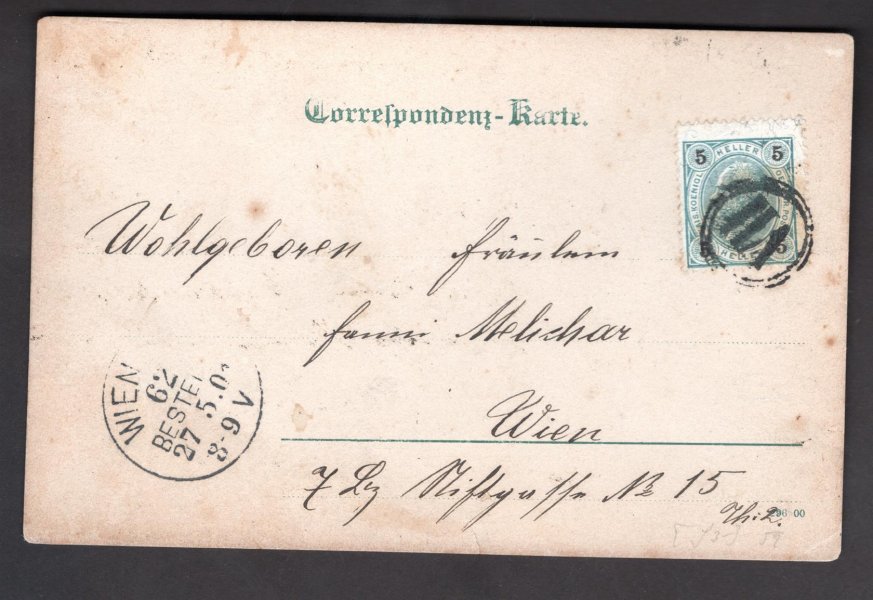 Correspondenz-Karte.
5 HELLER 5
HELLER
Wohlgeboren Fräulein
Fanni Melichar
Wien
7 Bz Stiftgasse № 15
Th: 2.
96 00
WIEN
62
BESTEL
27 5.0
8-9 V